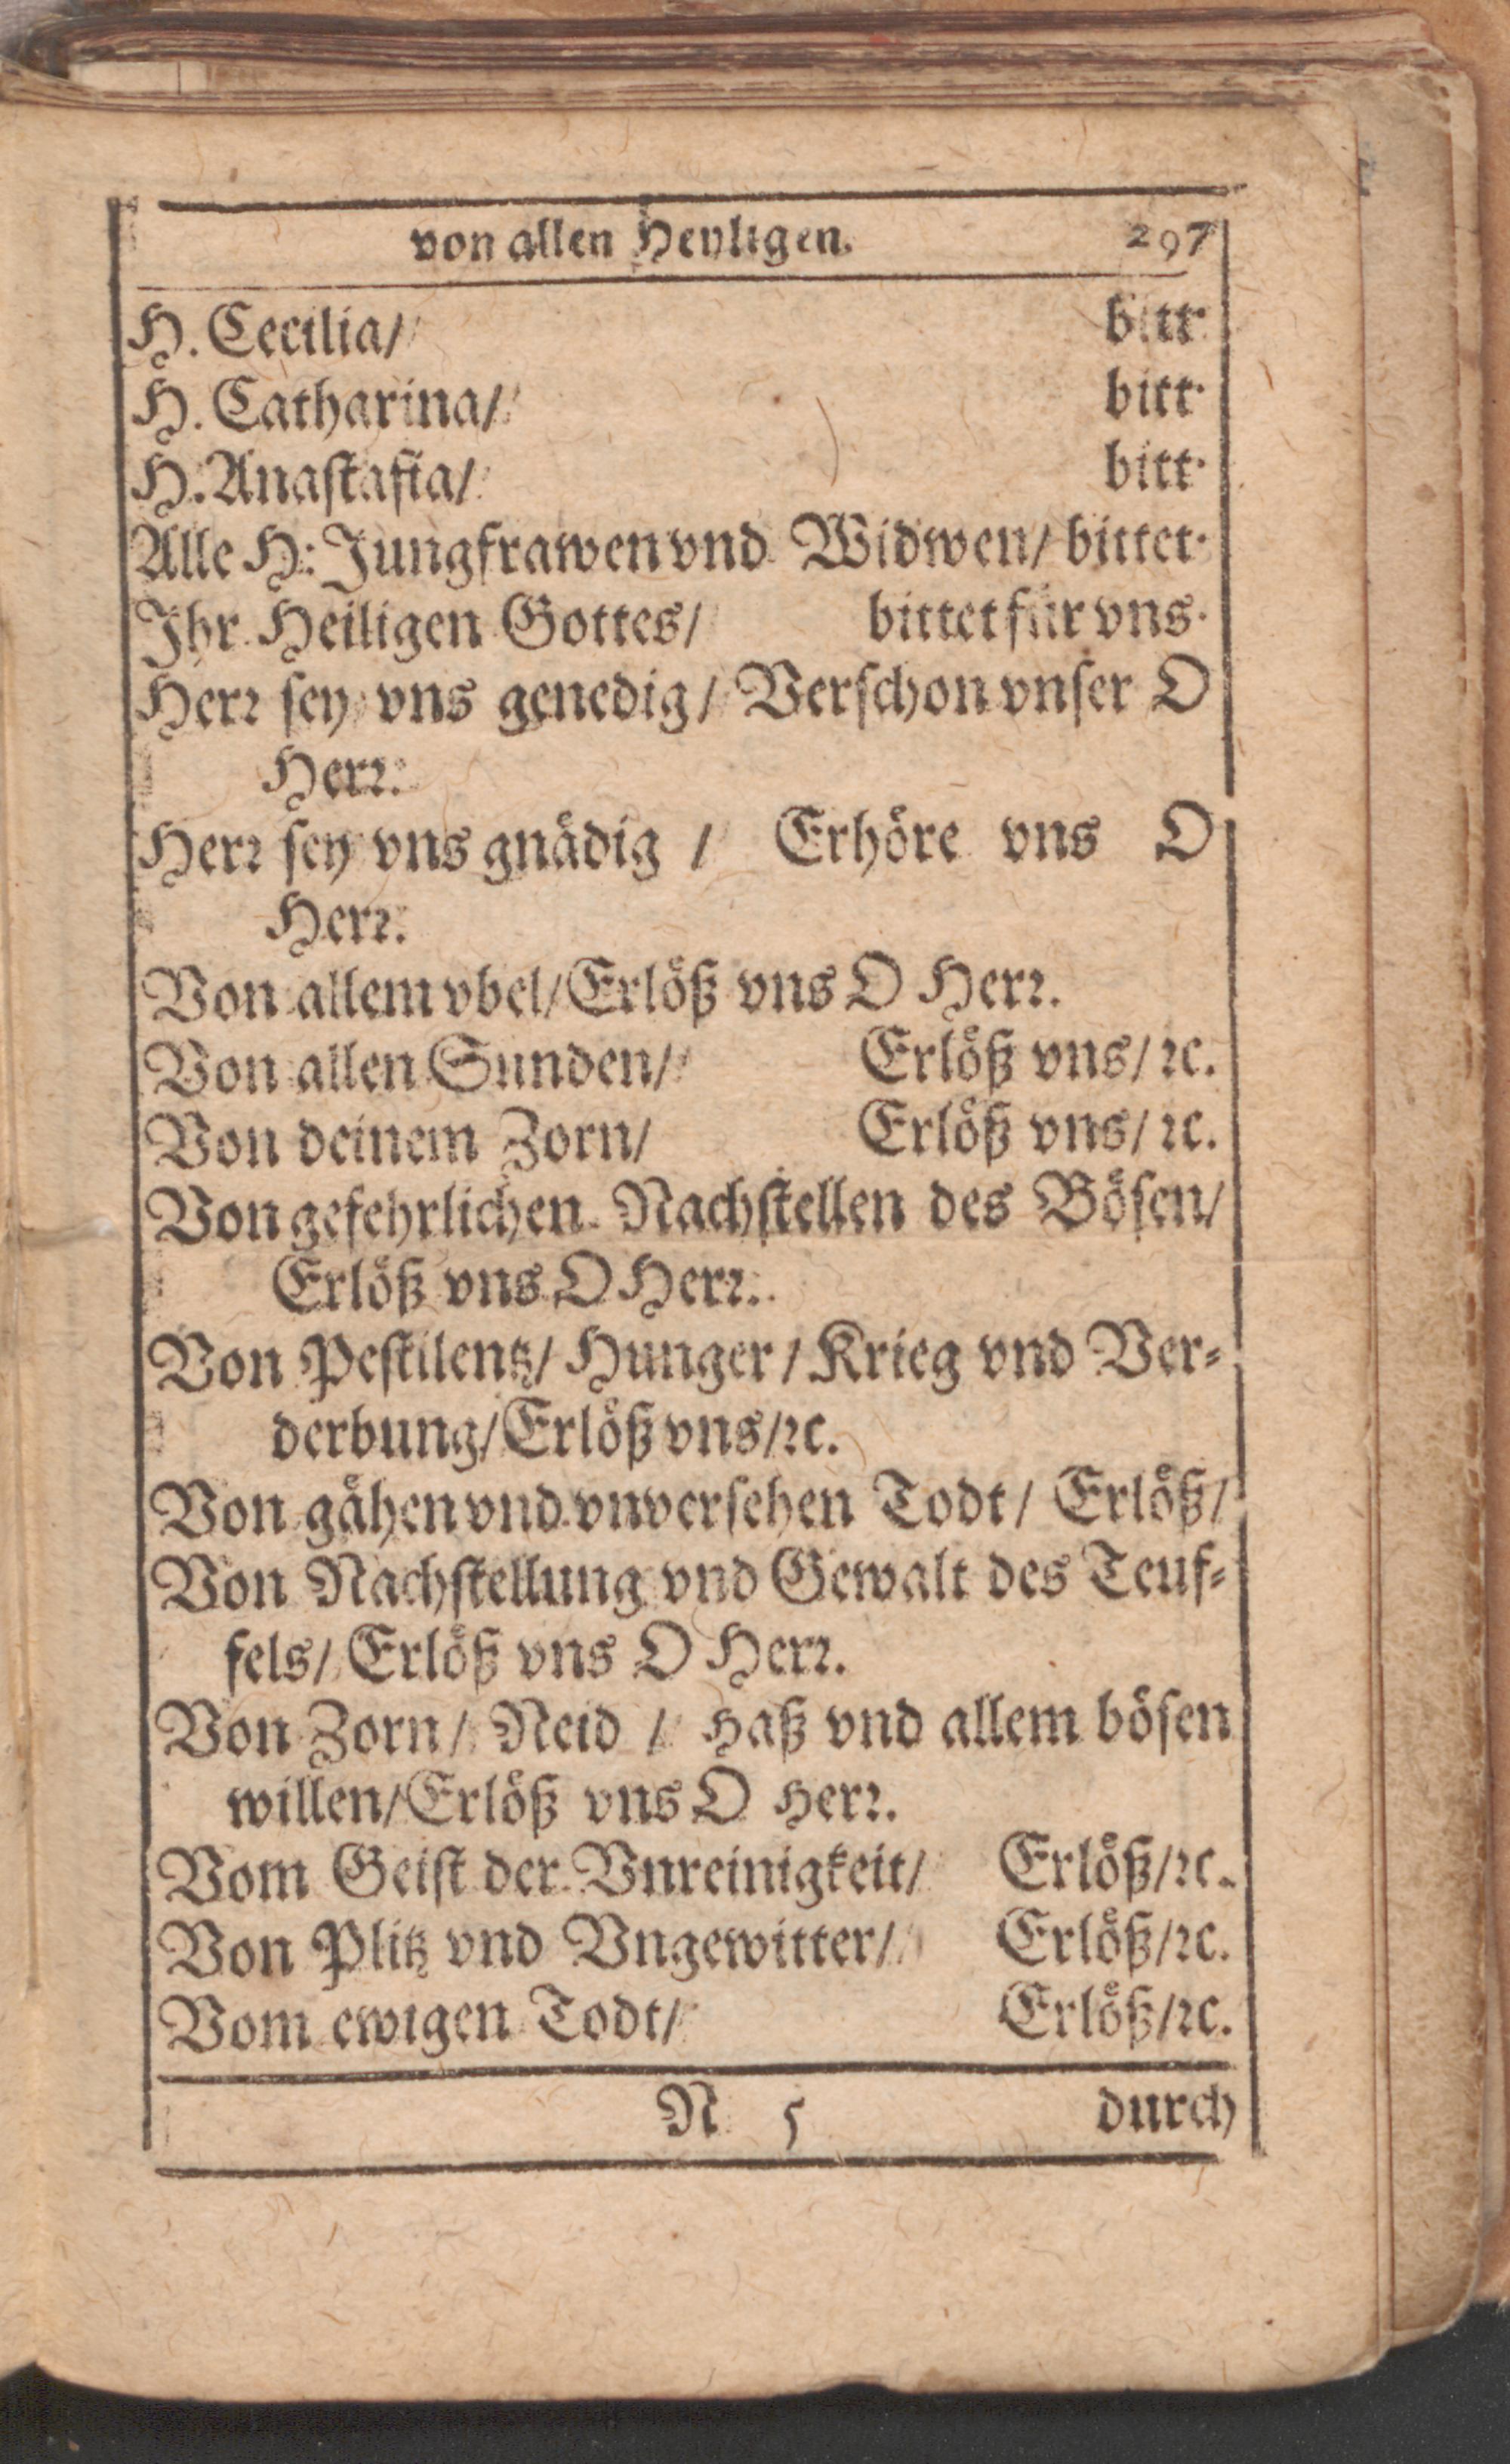 von allen Heyligen. 297
H. Cecilia/ bitt.
H. Catharina/ bitt.
H. Anaſtaſia/ bitt.
Alle H: Jungfrawen vnd Widwen/ bittet.
Jhr Heiligen Gottes/ bittet für vns.
Herꝛ ſey vns genedig/ Verſchon vnſer O
Herꝛ.
Herꝛ ſey vns gnädig / Erhöre vns O
Herꝛ.
Von allem vbel/ Erlöß vns O Herꝛ.
Von allen Sunden/ Erlöß vns/ ꝛc.
Von deinem Zorn/ Erlöß vns/ ꝛc.
Von gefehrlichen Nachſtellen des Böſen/
Erlöß vns O Herꝛ.
Von Peſtilentz/ Hunger / Krieg vnd Ver⸗
derbung/ Erlöß vns/ꝛc.
Von gähen vnd vnverſehen Todt/ Erlöß/
Von Nachſtellung vnd Gewalt des Teuf⸗
fels/ Erlöß vns O Herꝛ.
Von Zorn/ Neid / Haß vnd allem böſen
willen/ Erlöß vns O Herꝛ.
Vom Geiſt der Vnreinigkeit/ Erlöß/ꝛc.
Von Plitz vnd Vngewitter/ Erlöß/ꝛc.
Vom ewigen Todt/ Erlöß/ꝛc.
N 5 durch